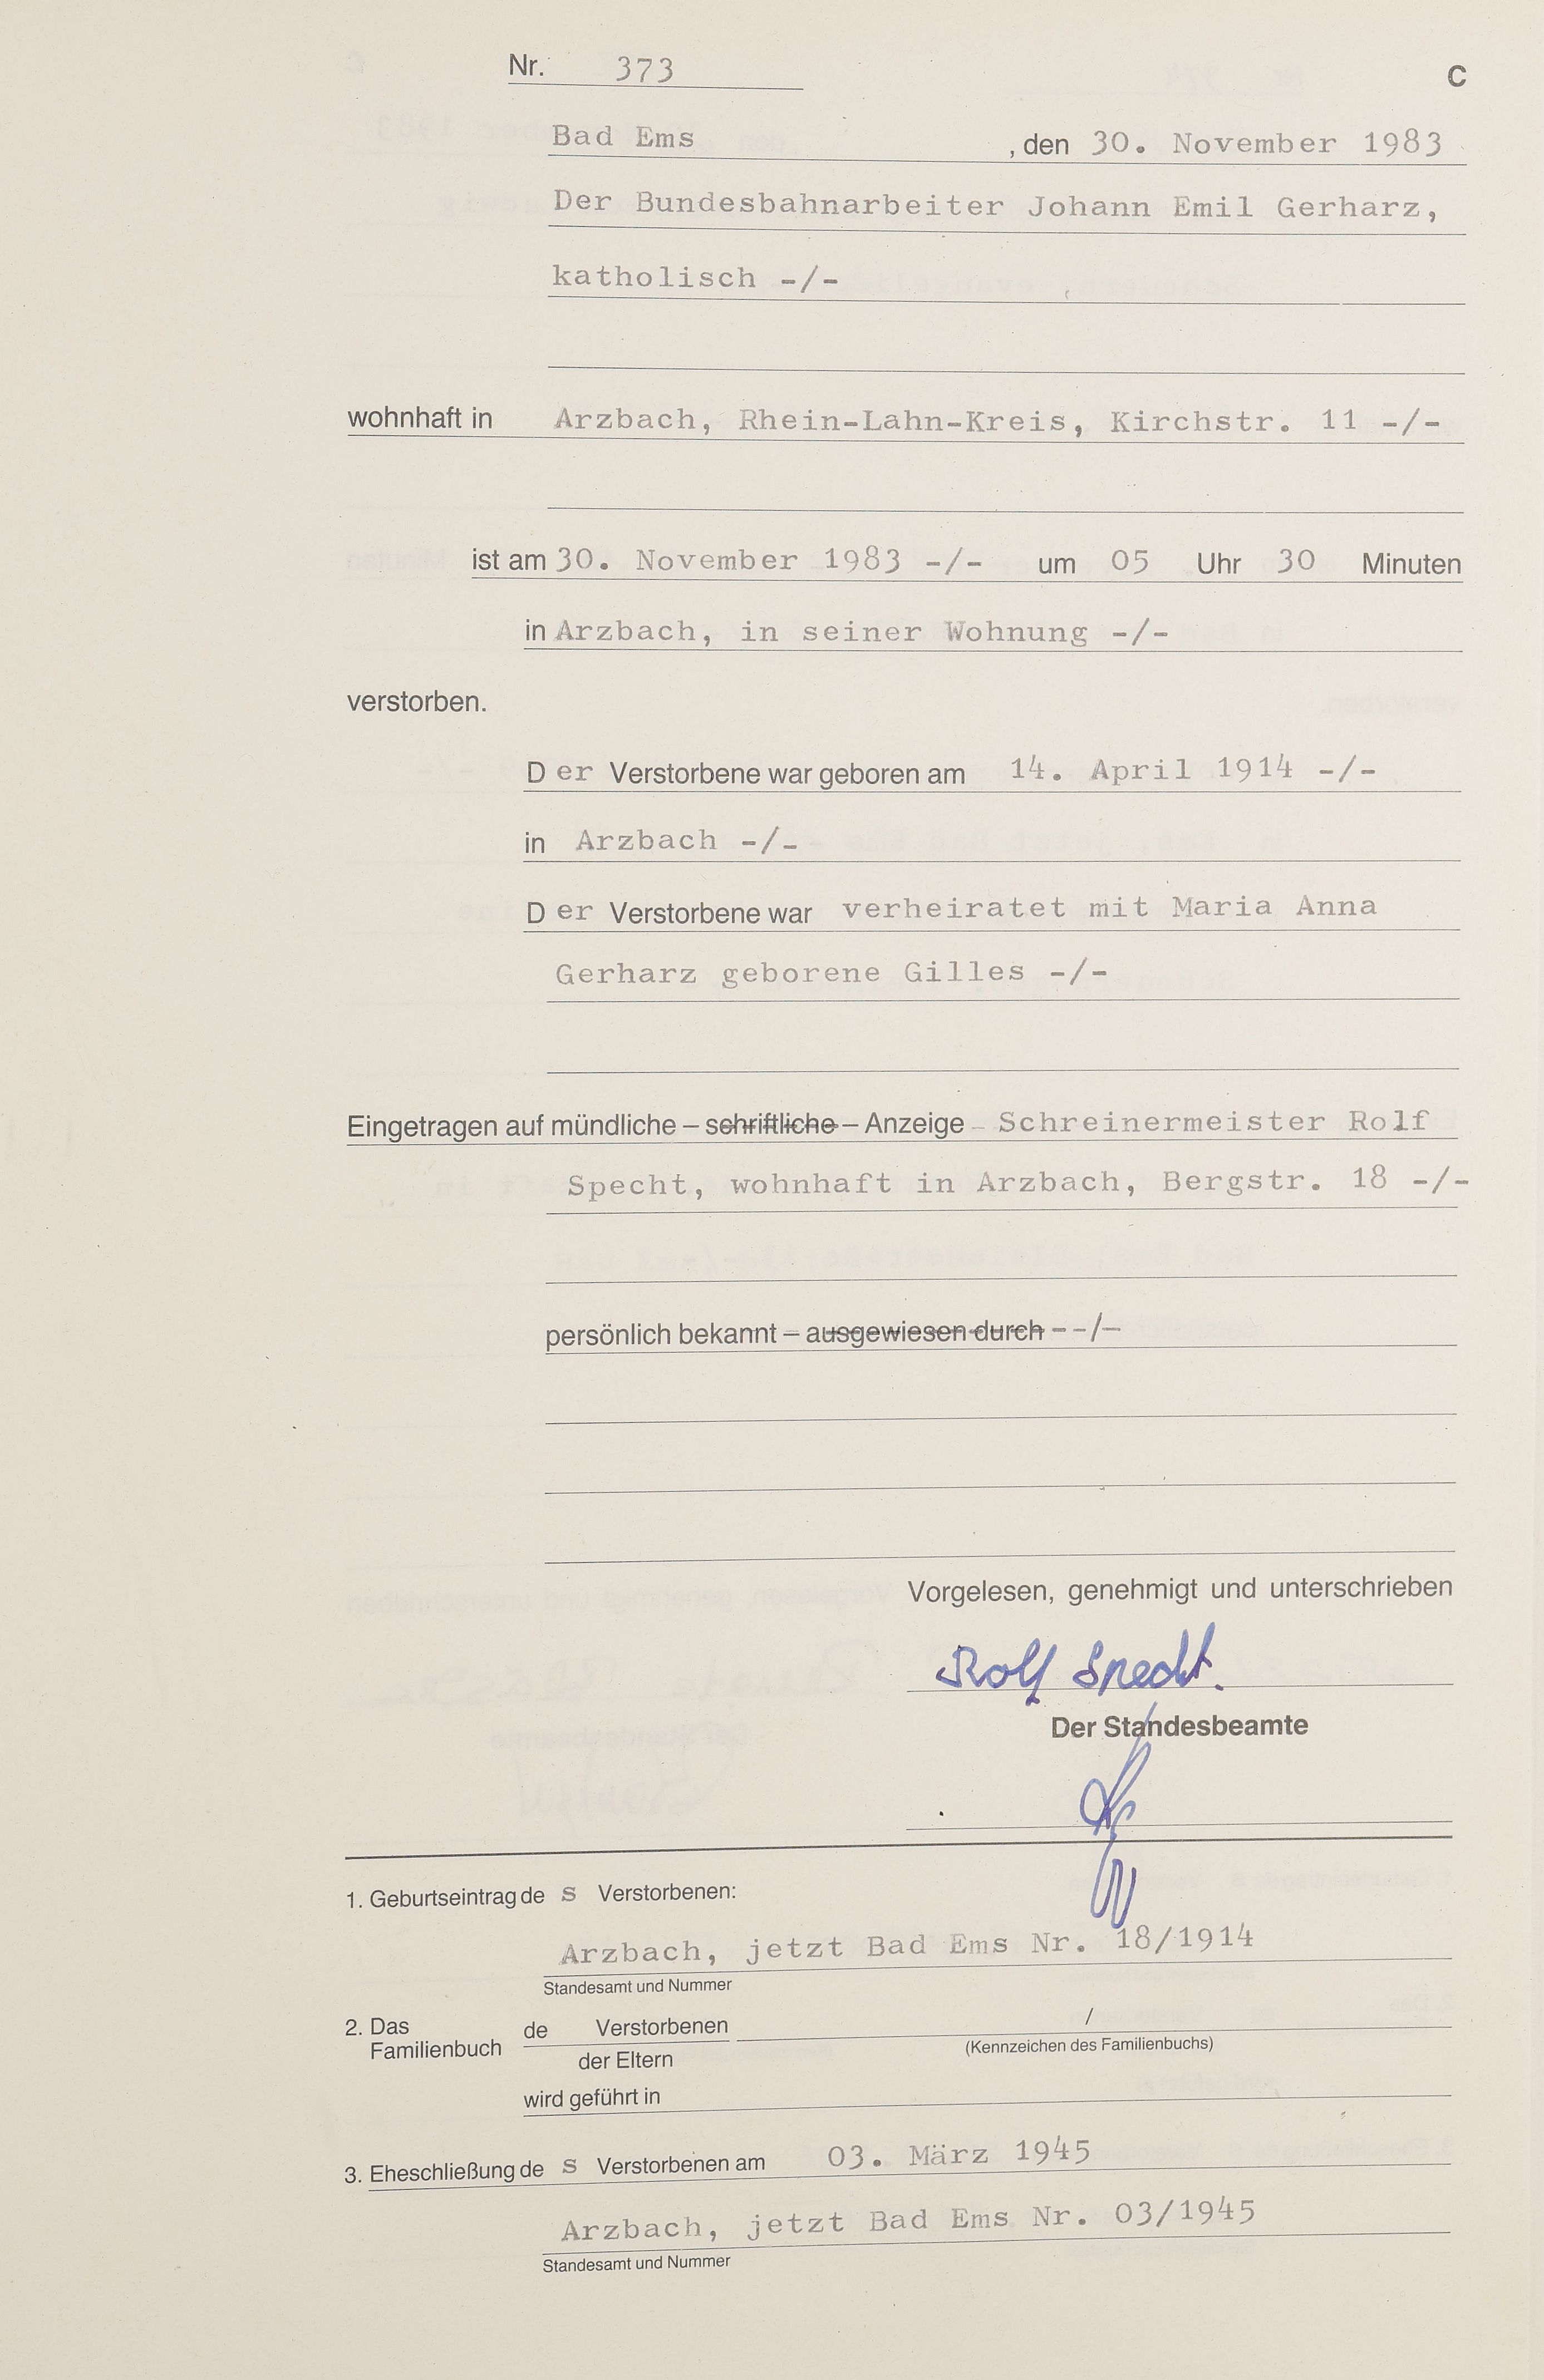 Nr. 373
C
Bad Ems , den 30. November 1983
Der Bundesbahnarbeiter Johann Emil Gerharz,
katholisch -/-
wohnhaft in Arzbach, Rhein-Lahn-Kreis, Kirchstr. 11 -/-
ist am 30. November 1983 -/- um 05 Uhr 30 Minuten
in Arzbach, in seiner Wohnung -/-
verstorben.
Der Verstorbene war geboren am 14. April 1914 -/-
in Arzbach -/-
Der Verstorbene war verheiratet mit Maria Anna
Gerharz geborene Gilles -/-
Eingetragen auf mündliche – schriftliche – Anzeige - Schreinermeister Rolf
Specht, wohnhaft in Arzbach, Bergstr. 18 -/-
persönlich bekannt – ausgewiesen durch - -/-
Vorgelesen, genehmigt und unterschrieben
Rolf Specht.
Der Standesbeamte
1. Geburtseintrag des Verstorbenen:
Arzbach, jetzt Bad Ems Nr. 18/1914
Standesamt und Nummer
2. Das Familienbuch de Verstorbenen /
der Eltern (Kennzeichen des Familienbuchs)
wird geführt in
3. Eheschließung des Verstorbenen am 03. März 1945
Arzbach, jetzt Bad Ems Nr. 03/1945
Standesamt und Nummer